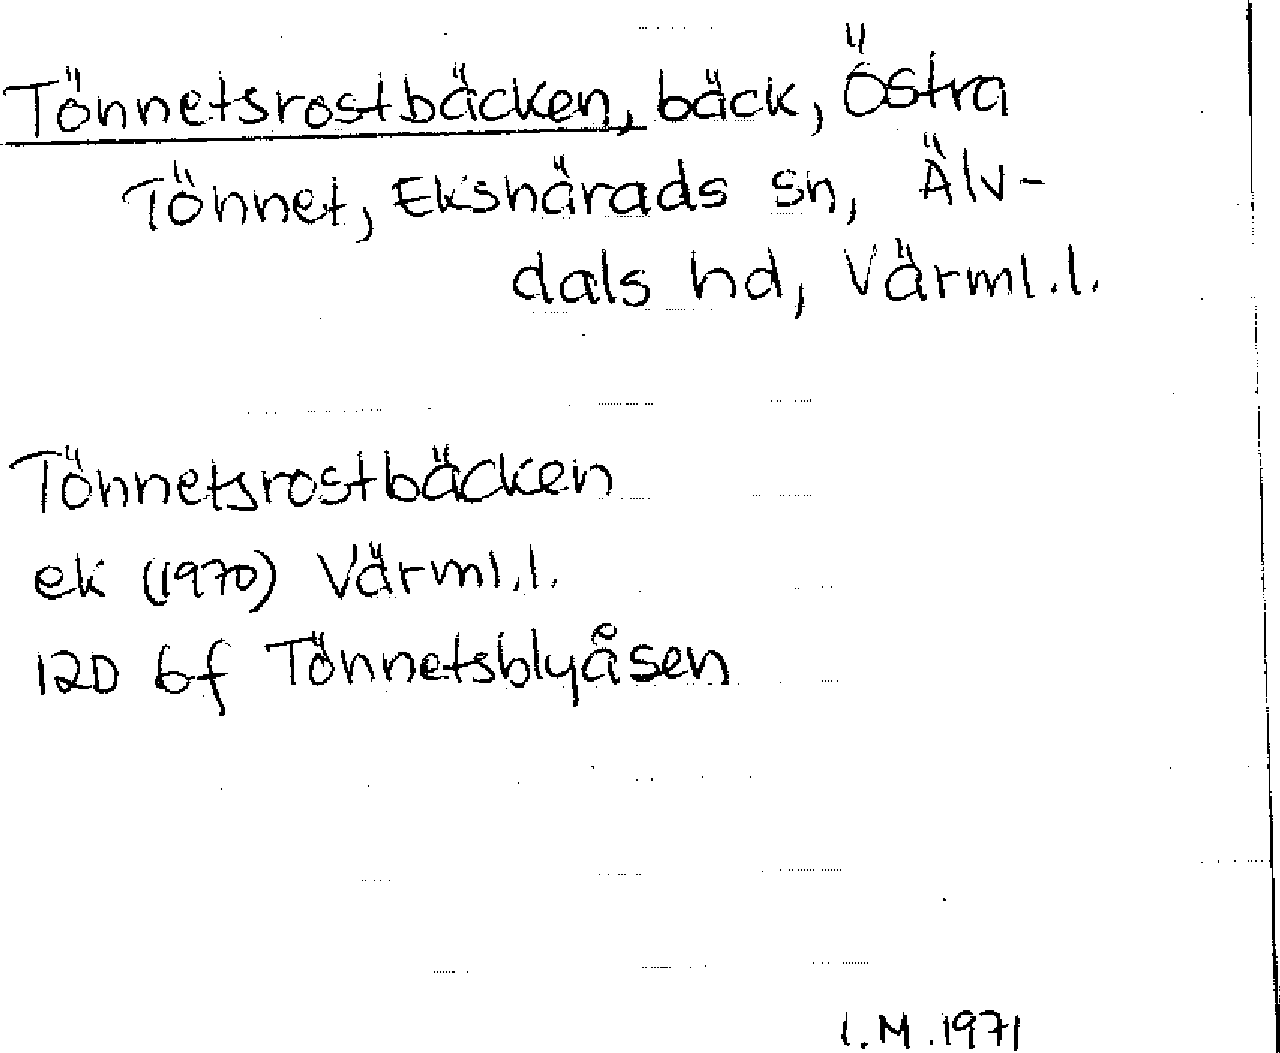 Tönnetsrostbäcken, bäck, Östra
Tönnet, Ekshärads sn, Älv-
dals hd, Värml.l.
Tönnetsrostbäcken
ek (1970) Värml.l.
12D 6f Tönnetsblyåsen
I.M.1971